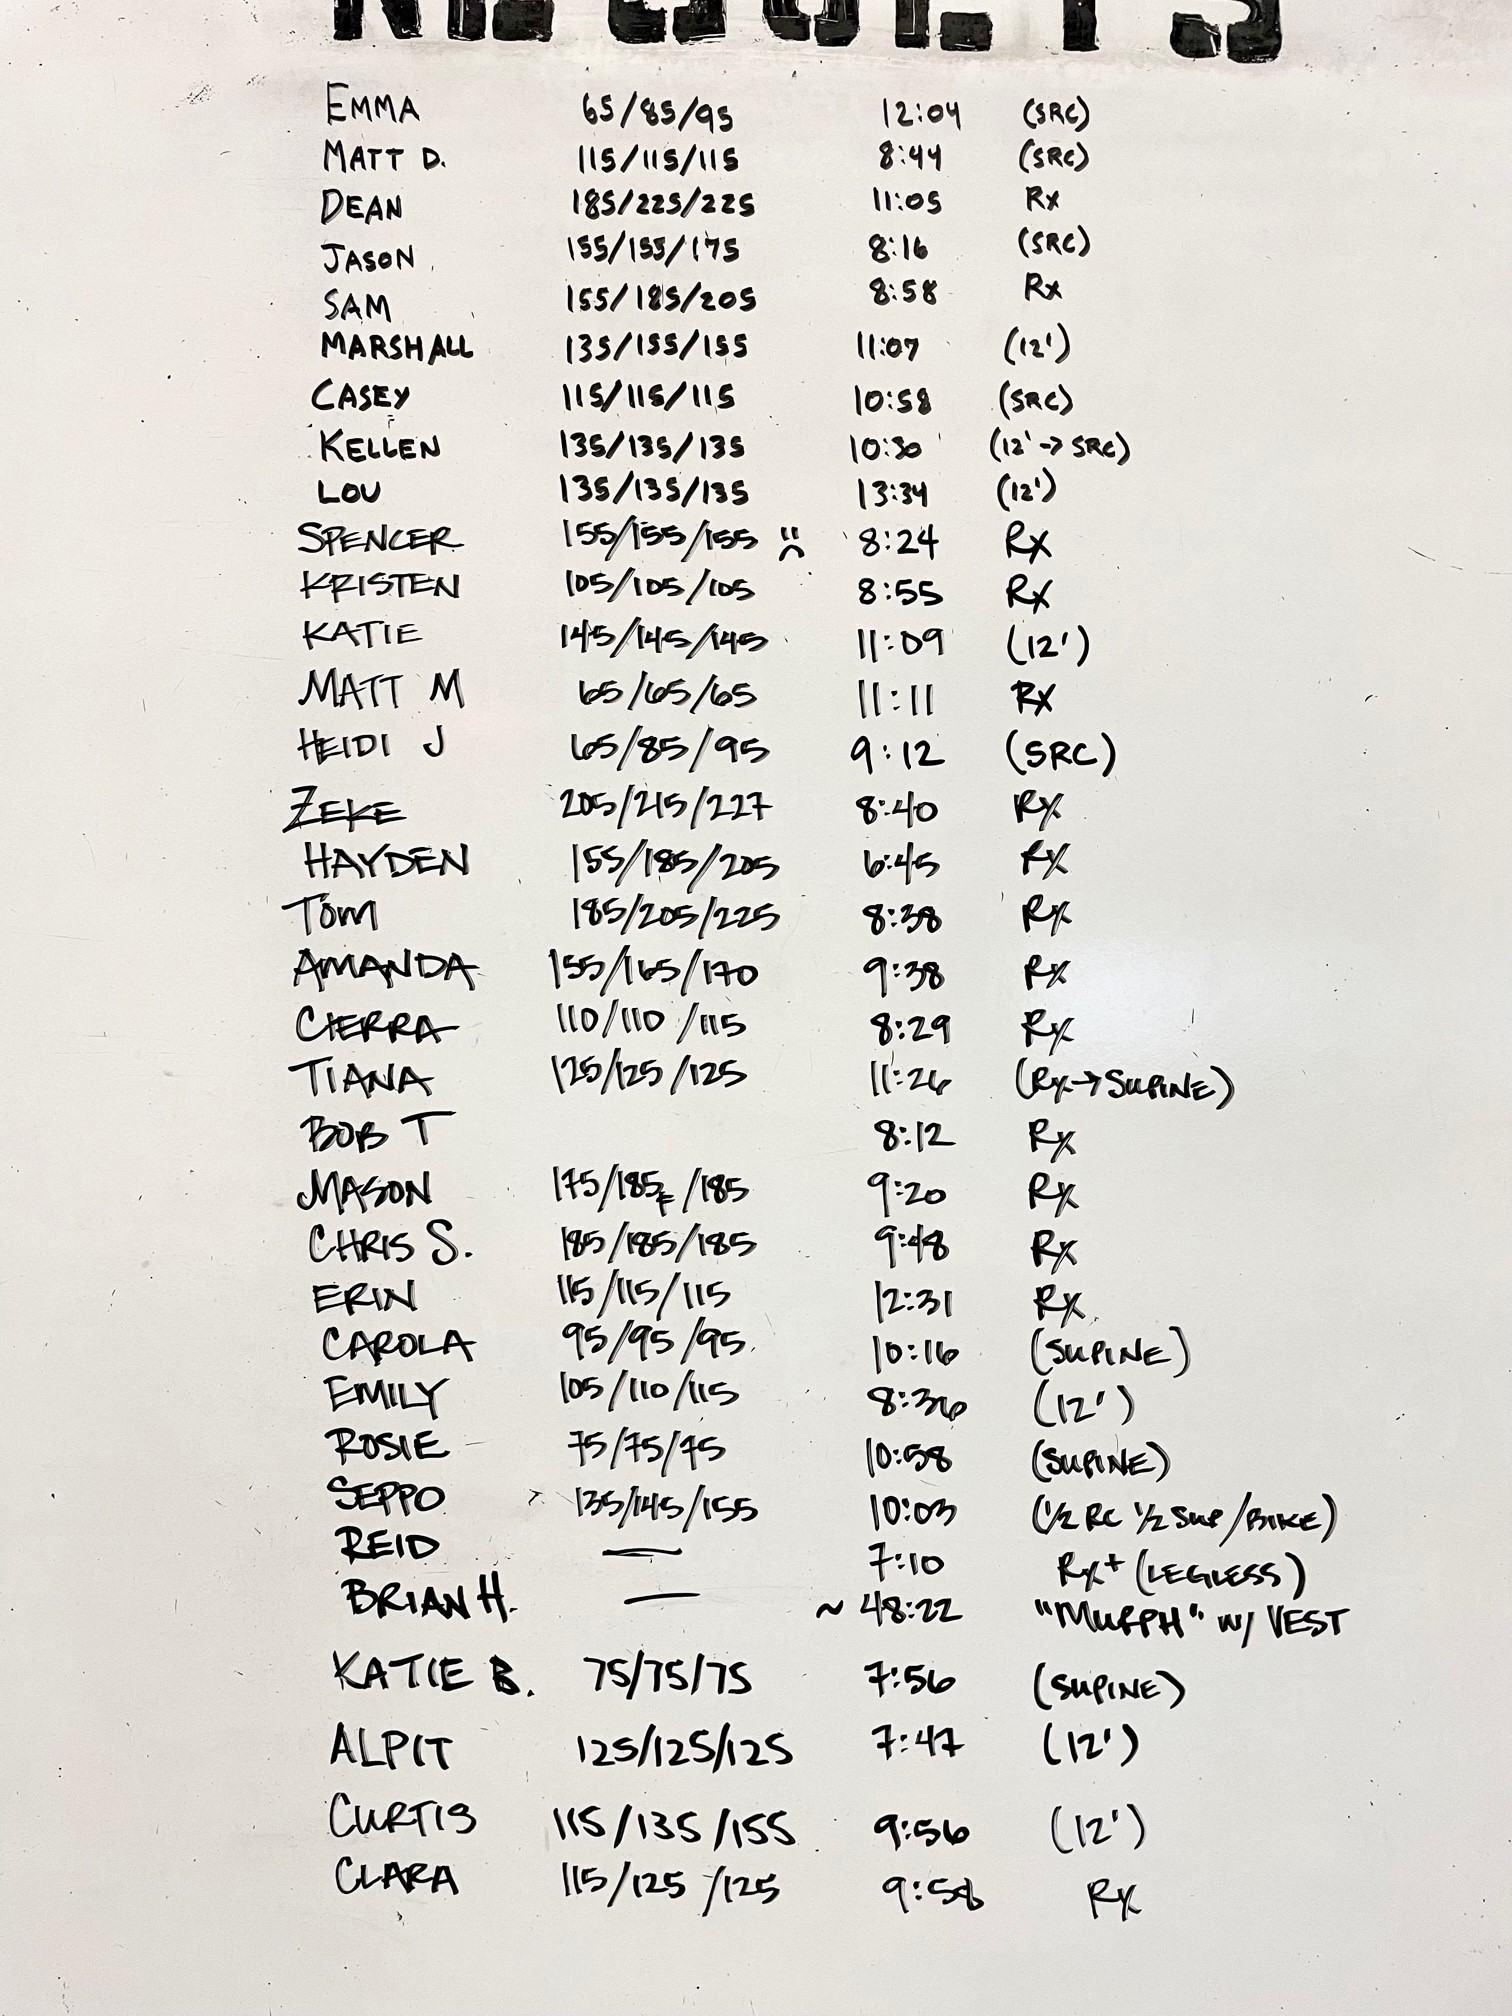 RESULTS
EMMA 65/85/95 12:04 (SRC)
MATT D. 115/115/115 8:44 (SRC)
DEAN 185/225/225 11:05 Rx
JASON 155/155/175 8:16 (SRC)
SAM 155/185/205 8:58 Rx
MARSHALL 135/155/155 11:07 (12')
CASEY 115/115/115 10:58 (SRC)
KELLEN 135/135/135 10:30 (12'→SRC)
LOU 135/135/135 13:34 (12')
SPENCER 155/155/155 8:24 Rx
KRISTEN 105/105/105 8:55 Rx
KATIE 145/145/145 11:09 (12')
MATT M 65/65/65 11:11 Rx
HEIDI J 65/85/95 9:12 (SRC)
ZEKE 205/215/227 8:40 Rx
HAYDEN 155/185/205 6:45 Rx
TOM 185/205/225 8:38 Rx
AMANDA 155/165/170 9:38 Rx
CIERRA 110/110/115 8:29 Rx
TIANA 125/125/125 11:26 (Rx→SUPINE)
BOB T 8:12 Rx
MASON 175/185F/185 9:20 Rx
CHRIS S. 185/185/185 9:48 Rx
ERIN 115/115/115 12:31 Rx
CAROLA 95/95/95 10:16 (SUPINE)
EMILY 105/110/115 8:36 (12')
ROSIE 75/75/75 10:58 (SUPINE)
SEPPO 135/145/155 10:03 (1/2 RC 1/2 SUP/BIKE)
REID — 7:10 Rx+ (LEGLESS)
BRIAN H. — ~48:22 "MURPH" w/ VEST
KATIE B. 75/75/75 7:56 (SUPINE)
ALPIT 125/125/125 7:47 (12')
CURTIS 115/135/155 9:56 (12')
CLARA 115/125/125 9:58 Rx